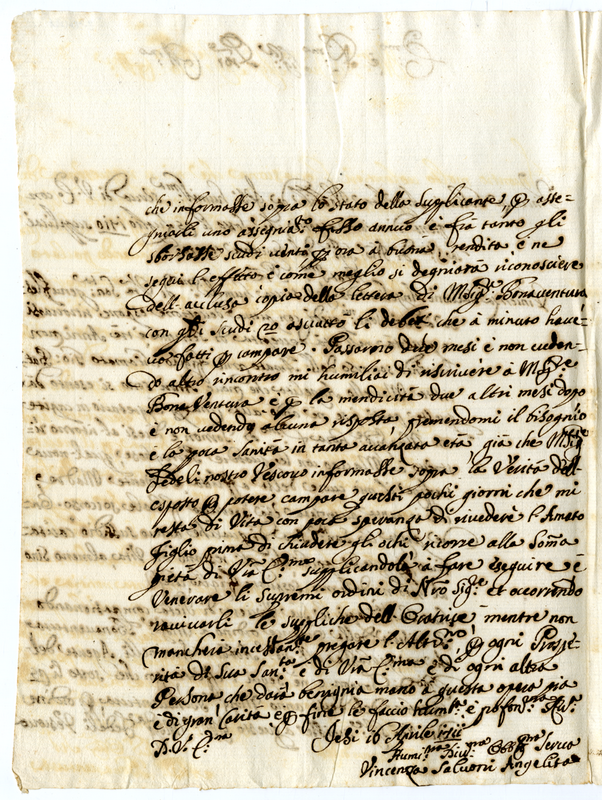 che informasse sopra lo stato della supplicante, p asse=
gniarli uno assegniam.to fisso annuo è fra tanto gli
sborsasse scudi venti p ora à buona rendita è ne
segui l'effetto è come meglio si degniarà riconosciere
dell'acclusa copia della lettera di Msig.r Bonaventura
con gli scudi 20 li debiti che à minuto have=
vo fatti p campare. Passarono due mesi è non veden=
do altro rincontro mi humiliai di riscrivere à M.re
Bona Ventura è p la mendicità due altri mesi dopo
è non vedendo alcuna risposta, premendomi il bisognio
è la poca sanità in tanta avanzata età, già che Msig.re
Fedeli nostro Vescovo informasse sopra la Verità dell
esposto p potere campare questi pochi giorni che mi
resta di Vita con poca speranza di rivedere l'Amato
figlio prima di chiudere gli ochi ricorre alla Som̃a
pietà di Vr̃a E.ma supplicandola à fare eseguire è
Venerare li supremi ordini di Nr̃o Sig.re et occorrendo
ravivarli le suppliche dell' mentre non
mancherà incessan.te pregare l'Altis.mo, p ogni Prospe=
rità di Sua San.ta è di Vr̃a E.ma è di ogni altra
Persona che darà benignia mano à questa opera pia
è di gran carità è p fine le faccio humil.a è profon.
D. V. E.ma Jesi 16 Aprile 1711
Humi.ma Obb.ma Serva
Vincenza Salvoni Angelita